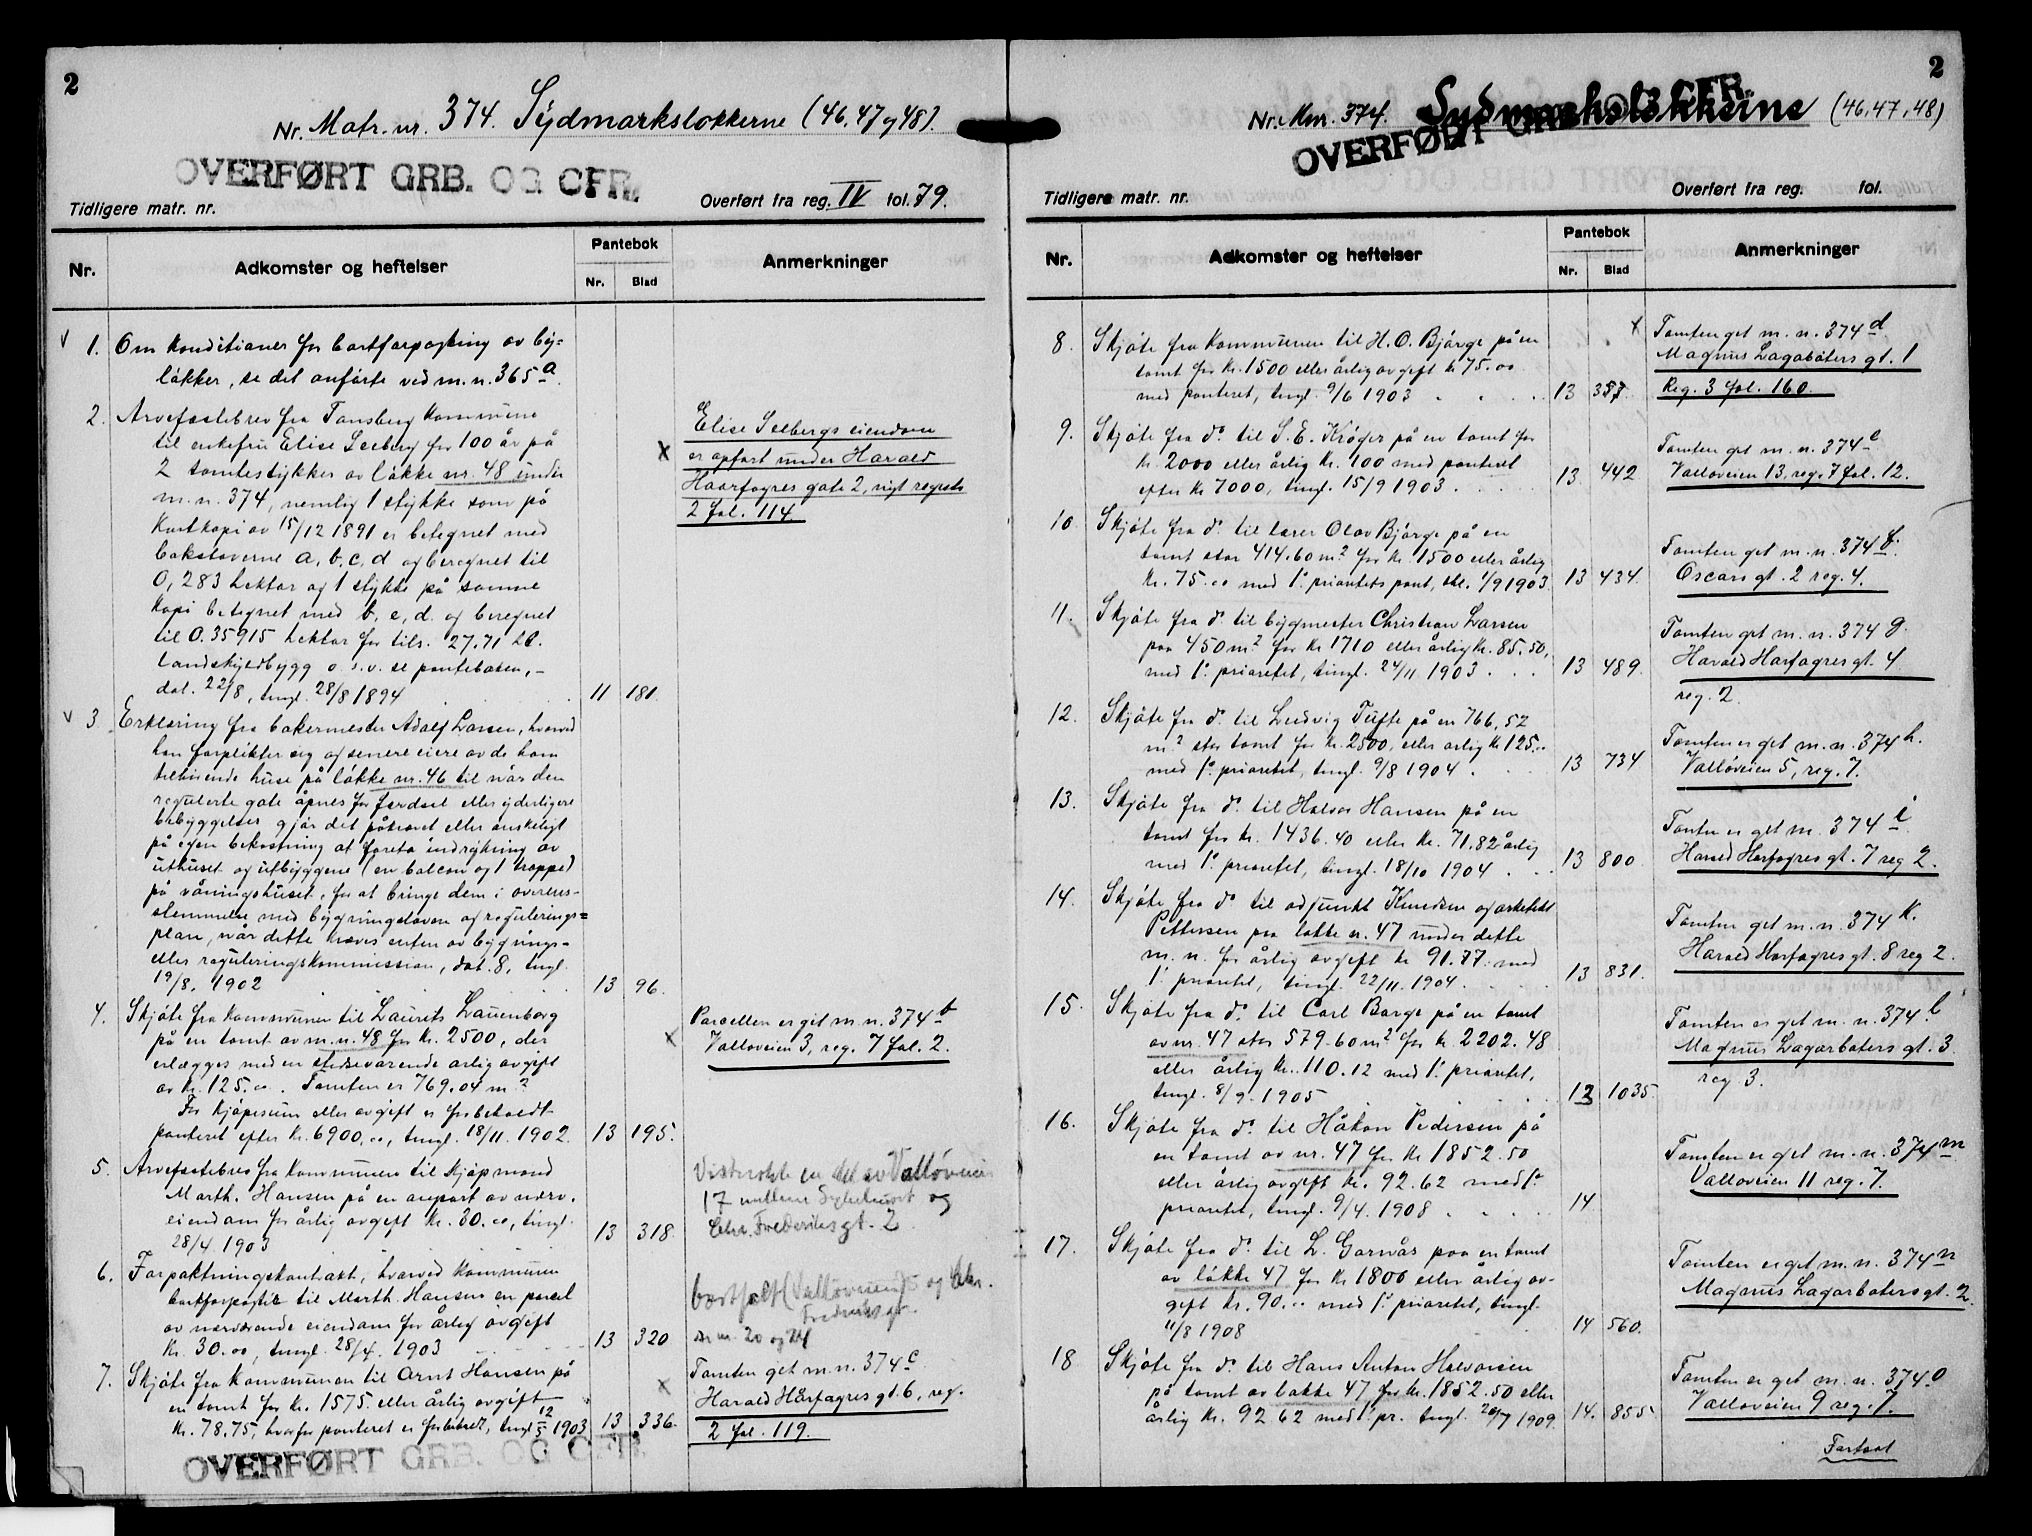 2
Nr. Matr. nr. 374. Sydmarksløkkerne (46, 47 og 48).
OVERFØRT GRB. OG CFR.
Tidligere matr. nr. Overført fra reg. IV fol. 79.
Nr. Adkomster og heftelser Pantebok Nr. Blad Anmerkninger
1. Om konditioner for bortforpagting av by=
løkker, se det anførte ved m.n. 365a.
2. Arvefæstebrev fra Tønsberg kommune
til enkefru Elise Seeberg for 100 år på
2 tomtestykker av løkke nr. 48 under
m.n. 374, nemlig 1 stykke som på
Kartkopi av 15/12 1891 er betegnet med
bokstaverne a, b, c, d og beregnet til
0,283 hektar og 1 stykke på samme
kopi betegnet med b, e, d. og beregnet
til 0.35915 hektar for tils. 27.71 hl.
landskyldbygg o.s.v. se panteboken, -
dat. 22/8, tingl. 28/8 1894 11 181.
Elise Seebergs eiendom
er opført under Harald
Haarfagres gate 2, nyt register
2 fol. 114.
3. Erklæring fra bakermester Adolf Larsen, hvorved
han forplikter sig og senere eiere av de ham
tilhørende huse på løkke nr. 46 til når den
regulerte gate åpnes for færdsel eller yderligere
bebyggelser gjør det påkrævet eller ønskeligt
på egen bekostning at foreta indrykning av
uthuset og utbyggene (en balcon og 1 trappe)
på våningshuset, for at bringe dem i overens=
stemmelse med bygningsloven og regulerings=
plan, når dette kræves enten av bygnings-
eller reguleringskommission, dat. 8, tingl.
19/8. 1902 13 96.
4. Skjøte fra kommunen til Laurits Lauenborg
på en tomt av m.n. 48 for kr. 2500, der
erlægges med en stedsevarende årlig avgift
av kr. 125.00. Tomten er 769.04 m2
For kjøpesum eller avgift er forbeholdt
panteret efter kr. 6900.00, tingl. 18/11. 1902. 13 195.
Parcellen er git m.n. 374b
Valløveien 3, reg. 7 fol. 2.
5. Arvefæstebrev fra kommunen til kjøpmand
Marth. Hansen på en anpart av nærv.
eiendom for årlig avgift kr. 30.00, tingl.
28/4. 1903 13 318.
Vistnokk en del av Valløveien
17 mellem Sykehuset og
Chr. Frederiks gt. 2
6. Forpaktningskontrakt, hvorved kommunen
bortforpagter til Marth. Hansen en parcel
av nærværende eiendom for årlig avgift
kr. 30.00, tingl. 28/4. 1903 13 320
og Chr.
Fredriks gt.
se nr. 20 og 24
7. Skjøte fra kommunen til Arnt Hansen på
en tomt for kr. 1575. eller årlig avgift
kr. 78.75, hvorfor panteret er forbeholdt, tingl 12/5 1903 13 336.
Tomten get m.n. 374c.
Harald Hårfagres gt. 6, reg.
2 fol. 119.
OVERFØRT GRB. OG CFR.
2
Nr. Mnr. 374. Sydmarksløkkerne (46, 47, 48)
OVERFØRT GRB. OG CFR.
Tidligere matr. nr. Overført fra reg. fol.
Nr. Adkomster og heftelser Pantebok Nr. Blad Anmerkninger
8. Skjøte fra kommunen til H. O. Bjørge på en
tomt for kr. 1500 eller årlig avgift kr 75.00
med panteret, tingl. 9/6 1903 13 357.
Tomten get m.n. 374d
Magnus Lagabøters gt. 1
Reg. 3 fol. 160.
9. Skjøte fra do. til S. E. Krøger på en tomt for
kr. 2000 eller årlig kr. 100 med panteret
efter kr 7000, tingl. 15/9 1903. 13 442
Tomten get m.n. 374e
Valløveien 13, reg. 7 fol. 12.
10. Skjøte fra do. til lærer Olav Bjørge på en
tomt stor 414.60 m2 for kr. 1500 eller årlig
kr. 75.00 med 1. prioritets pant, tgl. 1/9 1903. 13 434.
Tomten get m.n. 374f.
Oscars gt. 2 reg. 4.
11. Skjøte fra do. til bygmester Christian Larsen
paa 450 m2 for kr 1710 eller årlig kr. 85.50,
med 1. prioritet, tingl. 24/11 1903 13 489.
Tomten get m.n. 374 g.
Harald Harfagres gt. 4
reg. 2.
12. Skjøte fra do. til Ludvig Tufte på en 766,52
m2 stor tomt for kr. 2500, eller årlig kr 125.00
med 1. prioritet, tingl. 9/8 1904. 13 734
Tomten er get m.n. 374h.
Valløveien 5, reg. 7.
13. Skjøte fra do. til Halvor Hansen på en
tomt for kr. 1436.40 eller kr. 71.82 årlig
med 1. prioritet, tingl. 18/10 1904. 13 800.
Tomten er get m. 374i.
Harald Harfagres gt. 7 reg 2.
14. Skjøte fra do. til adjunkt Knudsen og arkitekt
Pettersen paa løkke nr. 47 under dette
m.n. for årlig avgift kr 91.77. med
1. prioritet, tingl. 22/11. 1904. 13 831.
Tomten get m.n. 374 k.
Harald Harfagres gt. 8 reg 2.
15. Skjøte fra do. til Carl Borge på en tomt
av nr. 47 stor 579.60 m2 for kr. 2202.48
eller årlig kr. 110.12 med 1. prioritet,
tingl. 8/9. 1905 13 1035.
Tomten er get m.n. 374 l
Magnus Lagarbøters gt. 3.
reg 3.
16. Skjøte fra do. til Håkon Pedersen på
en tomt av nr. 47 for kr 1852.50
eller årlig avgift kr. 92.62 med 1.
prioritet, tingl. 9/4. 1908 14
Tomten er get m.n. 374m
Valløveien 11 reg. 7.
17. Skjøte fra do. til L. Garnås paa en tomt
av løkke 47 for kr 1800 eller årlig av-
gift kr. 90.00 med 1. prioritet, tingl.
11/8 1908 14 560.
Tomten er get m.n. 374n
Magnus Lagarbøters gt. 2.
18 Skjøte fra do. til Hans Anton Halvorsen
på tomt av løkke 47 for kr. 1852.50 eller
årlig kr. 92 62 med 1. pr. tingl. 20/7 1909. 14. 855
Tomten er get m.n. 374o
Valløveien 9 reg. 7.
Fortsat